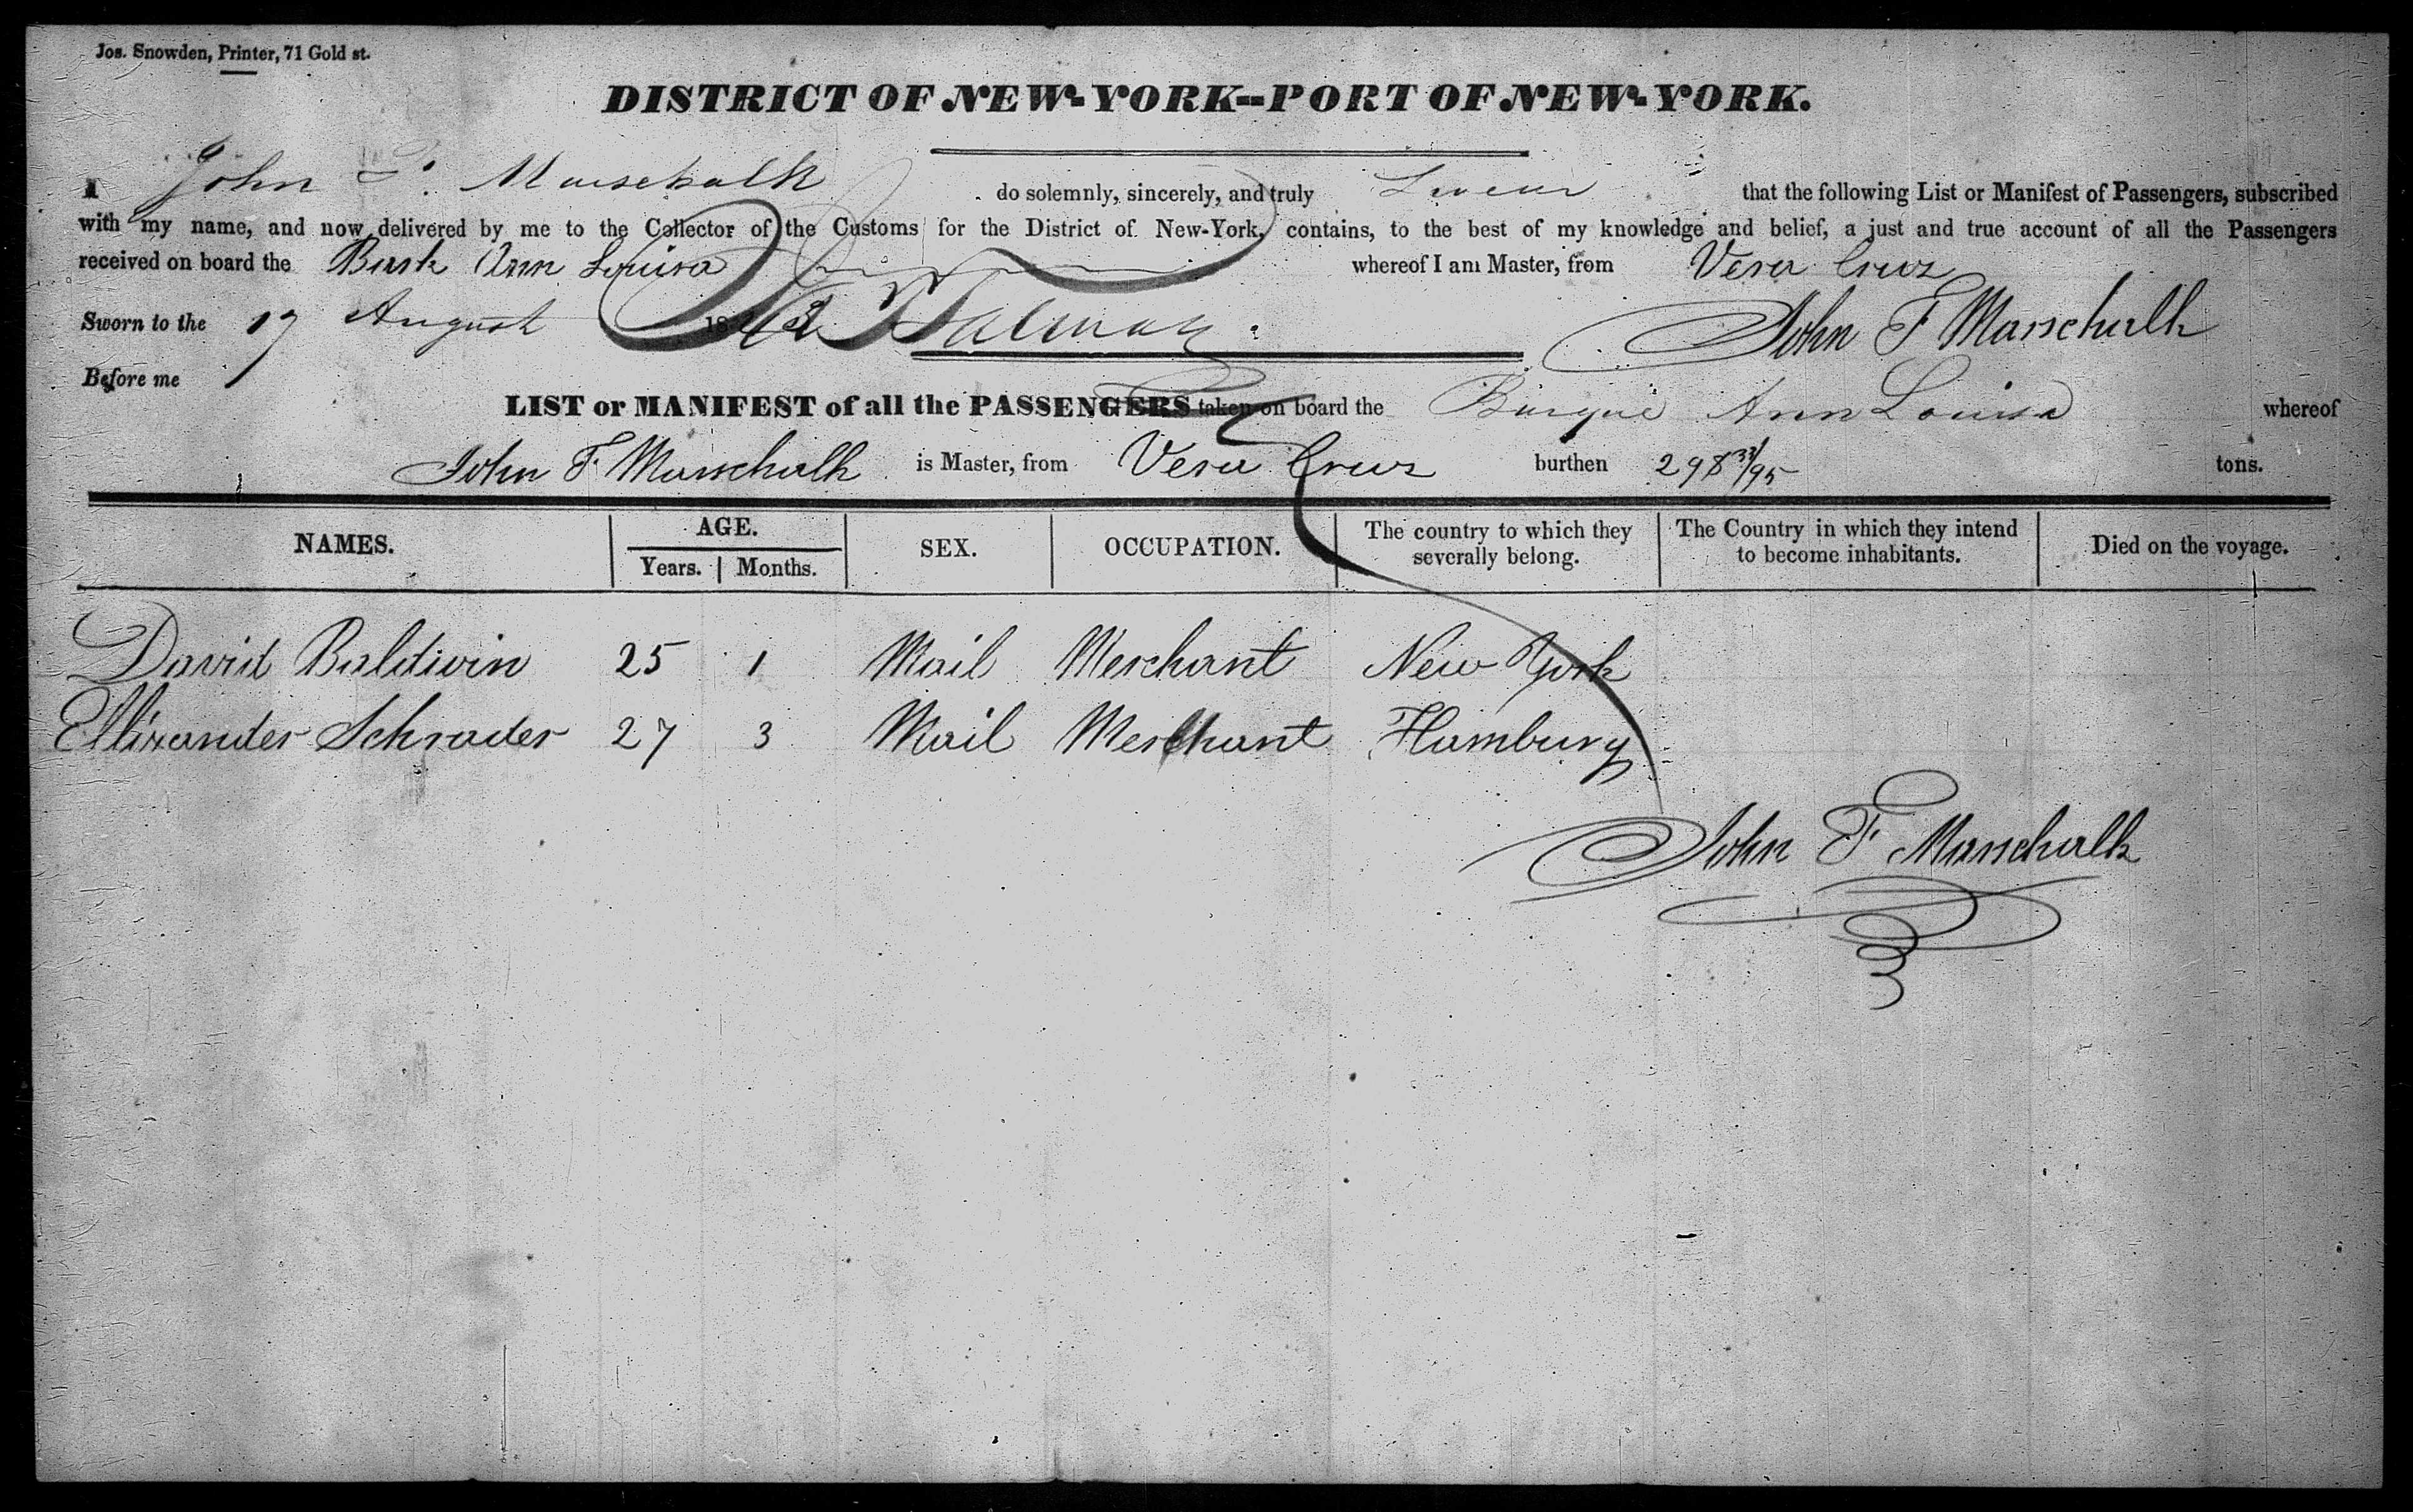 Jos. Snowden, Printer, 71 Gold st.
DISTRICT OF NEW-YORK--PORT OF NEW-YORK.
I John F. Marschalk do solemnly, sincerely, and truly Swear that the following List or Manifest of Passengers, subscribed
with my name, and now delivered by me to the Collector of the Customs for the District of New-York, contains, to the best of my knowledge and belief, a just and true account of all the Passengers
received on board the Bark Ann Louisa whereof I am Master, from Vera Cruz
Sworn to the 17 August 18 John F Marschalk
Before me
LIST or MANIFEST of all the PASSENGERS taken on board the Barque Ann Louisa whereof
John F Marschalk is Master, from Vera Cruz burthen 298 33/95 tons.
NAMES. AGE. SEX. OCCUPATION. The country to which they severally belong. The Country in which they intend to become inhabitants. Died on the voyage.
Years. Months.
David Baldwin 25 1 Mail Merchant New York
Allixander Schrader 27 3 Mail Merchant Hamburg
John F Marschalk